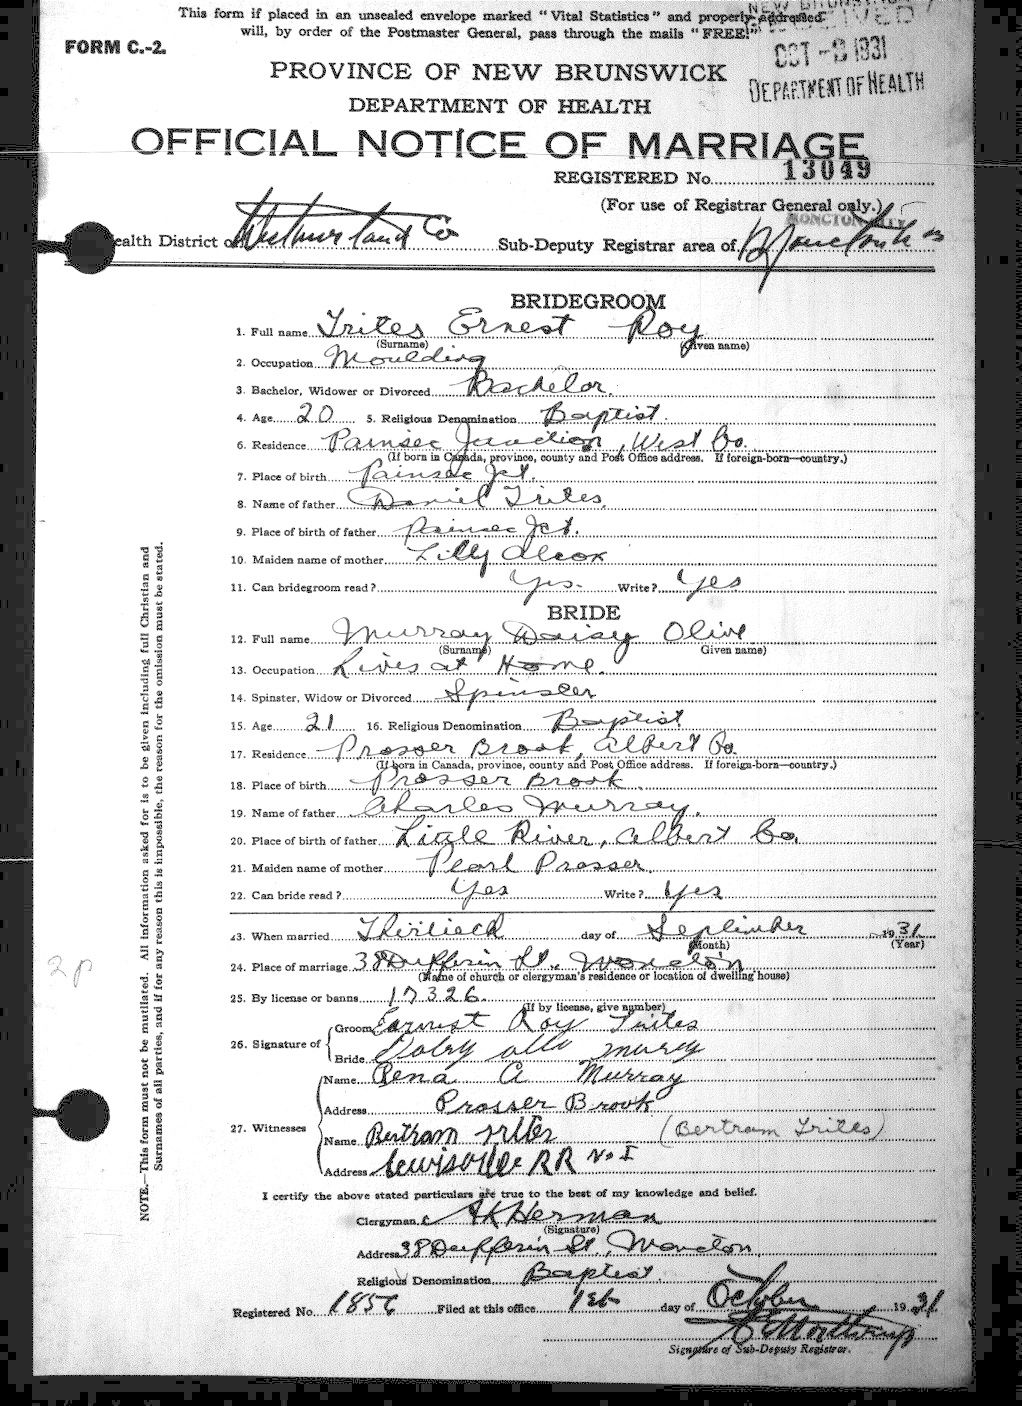 This form if placed in an unsealed envelope marked "Vital Statistics" and properly addressed
will, by order of the Postmaster General, pass through the mails "FREE!"
FORM C.-2.
OCT - 1931
DEPARTMENT OF HEALTH
PROVINCE OF NEW BRUNSWICK
DEPARTMENT OF HEALTH
OFFICIAL NOTICE OF MARRIAGE
REGISTERED No. 13049
(For use of Registrar General only.)
MONCTON CITY
ealth District of Westmorland Co Sub-Deputy Registrar area of Moncton
BRIDEGROOM
1. Full name Trites Ernest Roy
(Surname) (Given name)
2. Occupation Moulding
3. Bachelor, Widower or Divorced Bachelor.
4. Age 20 5. Religious Denomination Baptist.
6. Residence Painsec Junction, West Co.
(If born in Canada, province, county and Post Office address. If foreign-born—country.)
7. Place of birth Painsec Jct.
8. Name of father Daniel Trites.
9. Place of birth of father Painsec Jct.
10. Maiden name of mother Lilly Alcox
11. Can bridegroom read? Yes. Write? Yes
BRIDE
12. Full name Murray Daisy Olive
(Surname) Given name)
13. Occupation Lives at Home.
14. Spinster, Widow or Divorced Spinster
15. Age 21 16. Religious Denomination Baptist
17. Residence Prosser Brook, Albert Co.
(If born in Canada, province, county and Post Office address. If foreign-born—country.)
18. Place of birth Prosser Brook.
19. Name of father Charles Murray.
20. Place of birth of father Little River, Albert Co.
21. Maiden name of mother Pearl Prosser.
22. Can bride read? Yes Write? Yes
23. When married Thirtieth day of September 1931
(Month) (Year)
24. Place of marriage 38 Dufferin St., Moncton
(Name of church or clergyman's residence or location of dwelling house)
25. By license or banns 17326.
(If by license, give number)
26. Signature of
Groom Earnest Roy Trites
Bride Murry
27. Witnesses
Name Rena A Murray
Address Prosser Brook
Name Bertram Trites (Bertram Trites)
Address Lewisville RR No I
I certify the above stated particulars are true to the best of my knowledge and belief.
Clergyman A K Herman
(Signature)
Address 38 Dufferin St., Moncton,
Religious Denomination Baptist.
Registered No. 1856 Filed at this office 1st day of October 1931
Signature of Sub-Deputy Registrar.
NOTE.—This form must not be mutilated. All information asked for is to be given including full Christian and
Surnames of all parties, and if for any reason this is impossible, the reason for the omission must be stated.
2p